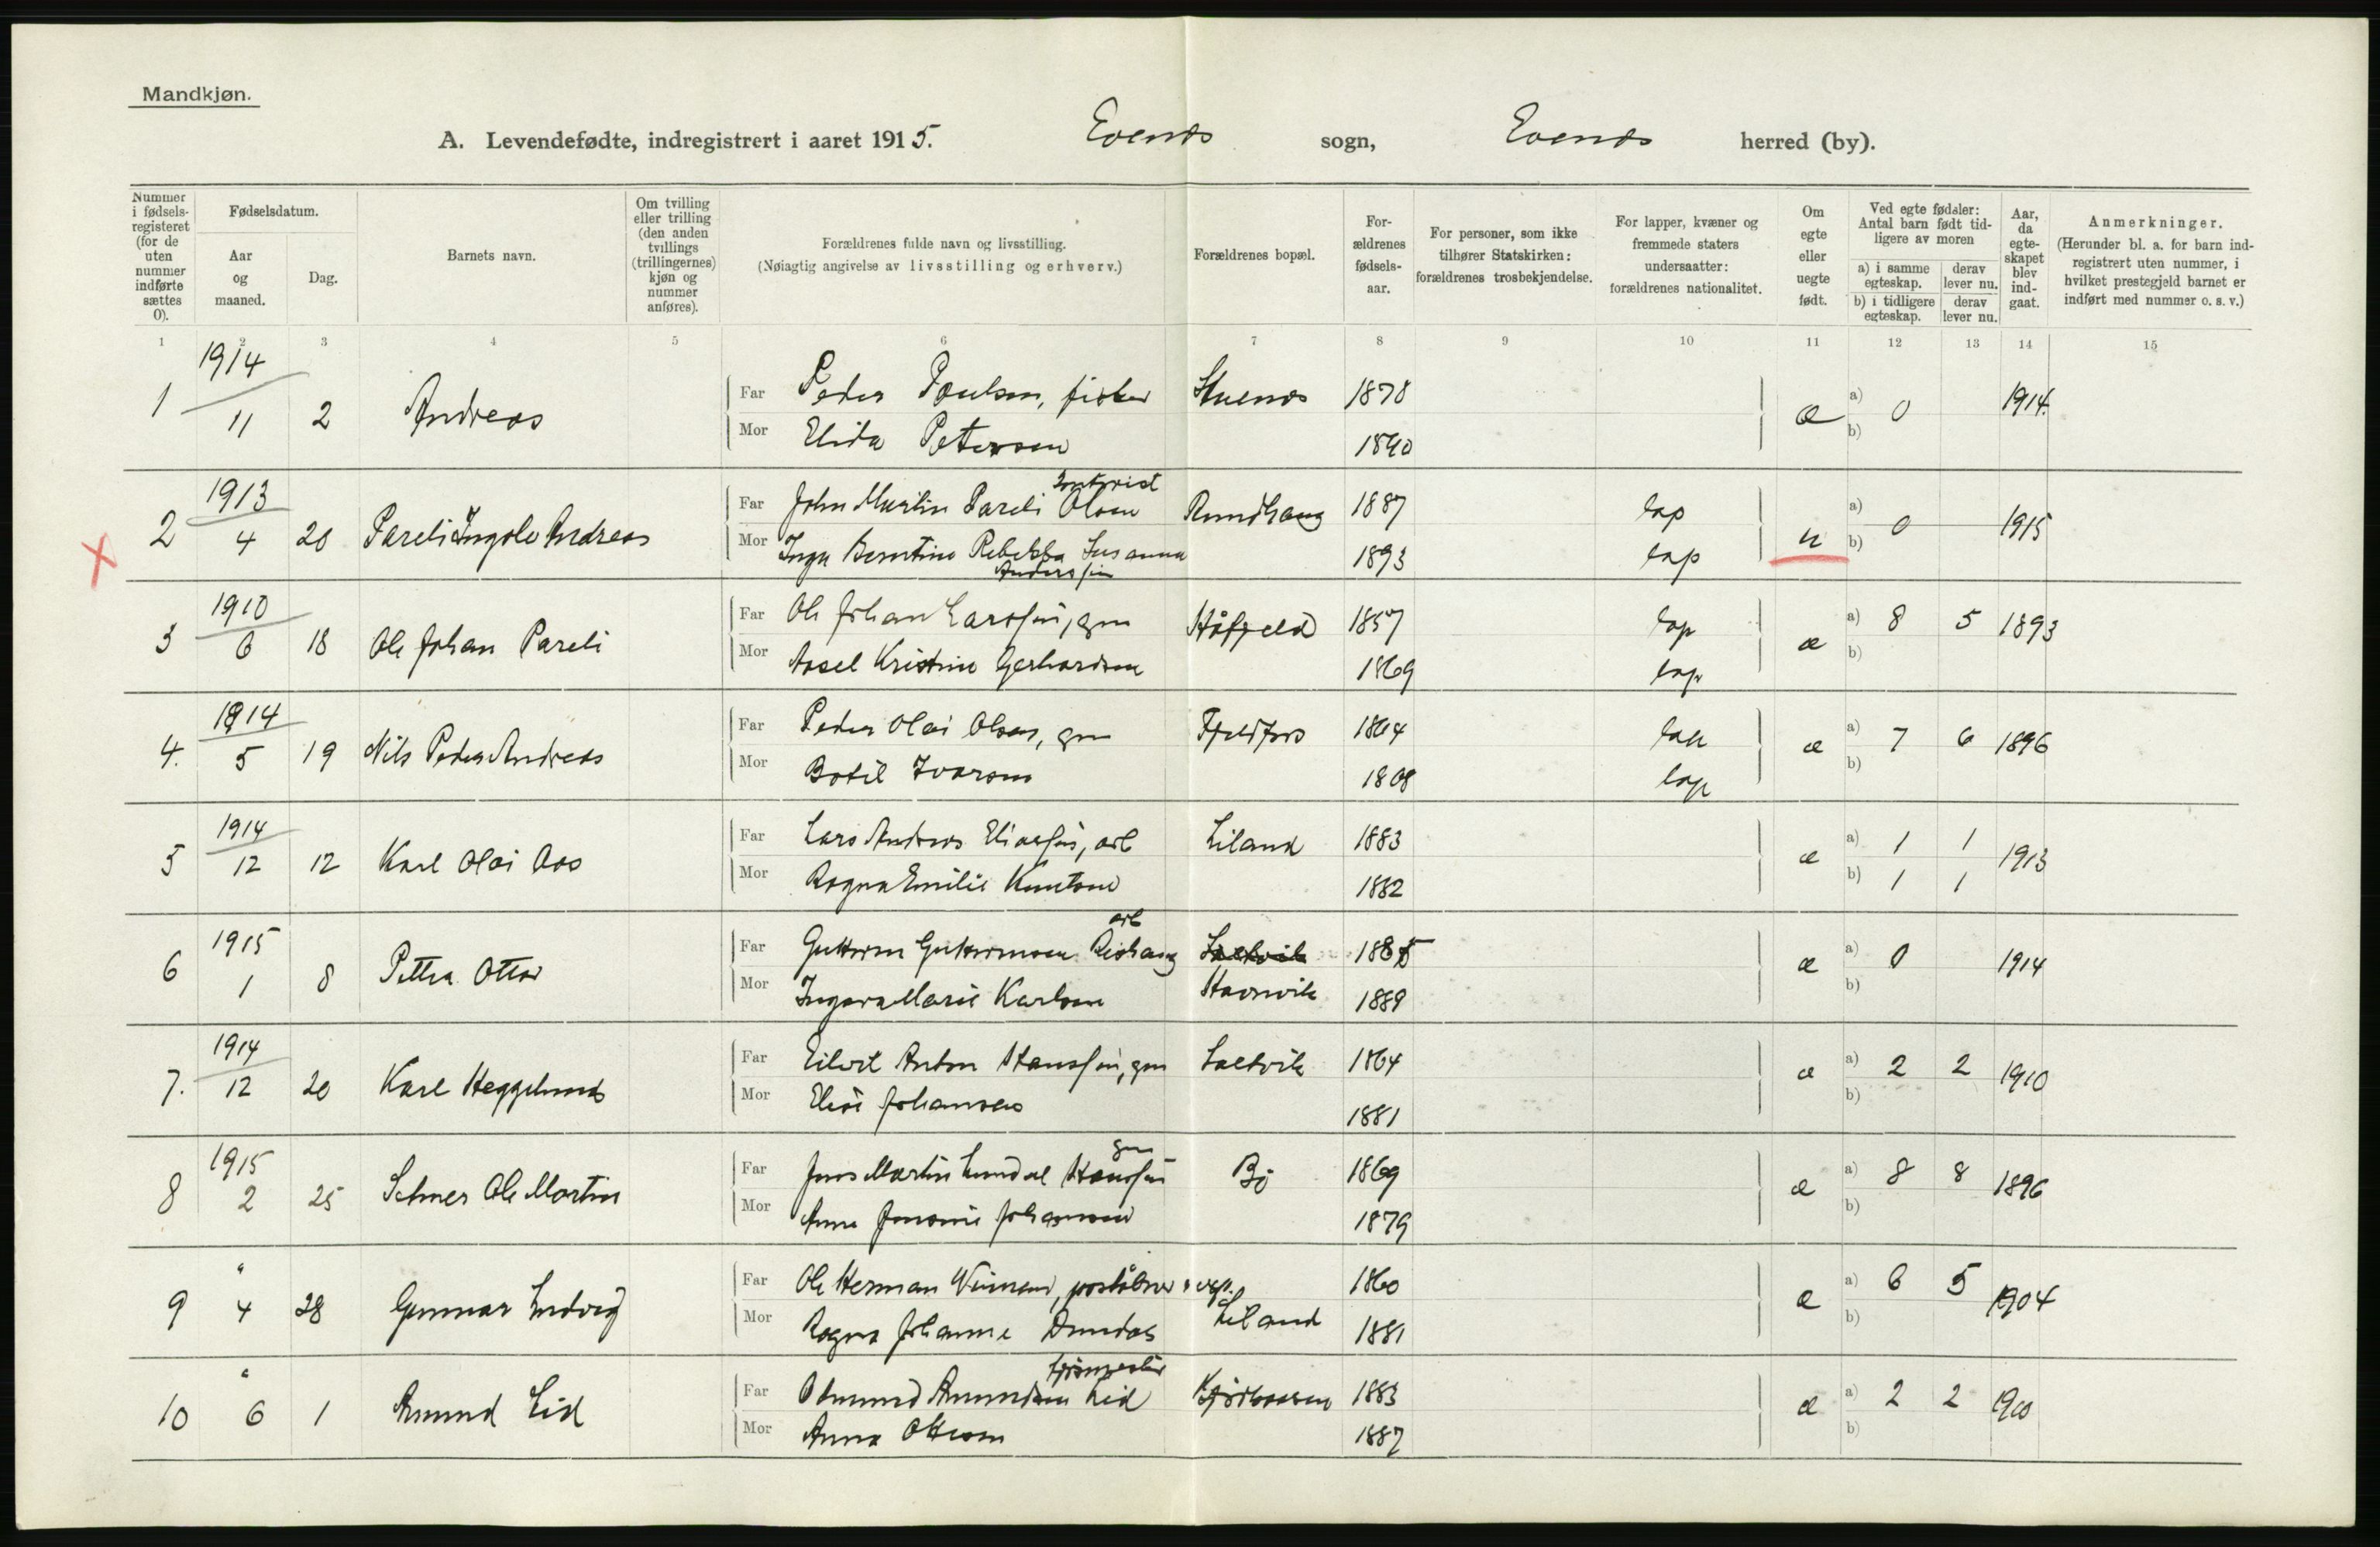 Mandkjøn.
A. Levendefødte, indregistrert i aaret 1915. Evenes sogn, Evenes herred (by).
Nummer i fødsels-registeret (for de uten nummer indførte sættes 0).
Fødselsdatum.
Aar og maaned.
Dag.
Barnets navn.
Om tvilling eller trilling (den anden tvillings (trillingernes) kjøn og nummer anføres).
Forældrenes fulde navn og livsstilling.
(Nøiagtig angivelse av livsstilling og erhverv.)
Forældrenes bopæl.
For-ældrenes fødsels-aar.
For personer, som ikke tilhører Statskirken: forældrenes trosbekjendelse.
For lapper, kvæner og fremmede staters undersaatter: forældrenes nationalitet.
Om egte eller uegte født.
Ved egte fødsler: Antal barn født tid-ligere av moren
a) i samme egteskap.
derav lever nu.
b) i tidligere egteskap.
derav lever nu.
Aar, da egte-skapet blev ind-gaat.
Anmerkninger.
(Herunder bl. a. for barn ind-registrert uten nummer, i hvilket prestegjeld barnet er indført med nummer o. s. v.)
1 2 3 4 5 6 7 8 9 10 11 12 13 14 15
1 1914 11 2 Andreas Far Peder Poulsen, fisker 1878 æ a) 0 1914.
Mor Elida Petersen 1890 b)
2 1913 4 20 Pareli Ingolv Andreas Far John Martin Pareli Olsen Rundhaug 1887 lap u a) 0 1915
Mor Inga Berntine Rebekka Susanna Anderssen 1893 lap b)
3 1910 6 18 Ole Johan Pareli Far Ole Johan Larssen, gm Håfjeld 1857 lap æ a) 8 5 1893
Mor Aasel Kristine Gerhardsen 1869 lap b)
4. 1914 5 19 Nils Peder Andreas Far Peder Olai Olsen, gm 1864 lap æ a) 7 6 1896
Mor Botil Ivarsen 1868 lap b)
5 1914 12 12 Karl Olai Aas Far Lars Andreas Eliassen, arb Liland 1883 æ a) 1 1 1913
Mor Ragna Emilie Knutsen 1882 b) 1 1
6 1915 1 8 Petter Ottar Far Guttorm Guttormsen arb 1885 æ a) 0 1914
Mor Ingvara Marie Karlsen 1889 b)
7. 1914 12 20 Karl Heggelund Far Eilert Anton Hanssen, gm Saltvik 1864 æ a) 2 2 1910
Mor Elise Johansen 1881 b)
8 1915 2 25 Selmer Ole Martin Far Jens Martin Lundal Hanssen gm Bø 1869 æ a) 8 8 1896
Mor Anna Jensine Johansen 1879 b)
9 " 4 28 Gunnar Ludvig Far Ole Herman poståbner 1860 æ a) 6 5 1904
Mor Ragna Johanne Dundas Liland 1881 b)
10 " 6 1 Amund Eid Far Amund Amundsen Eid 1883 æ a) 2 2 1910
Mor Anna Ottesen 1887 b)